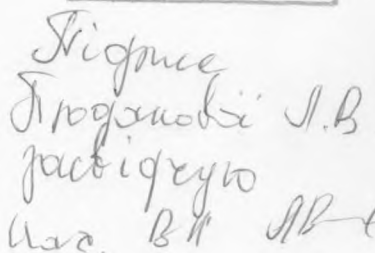 Підпис
Проданової Л.В
засвідчую
Нач. ВК